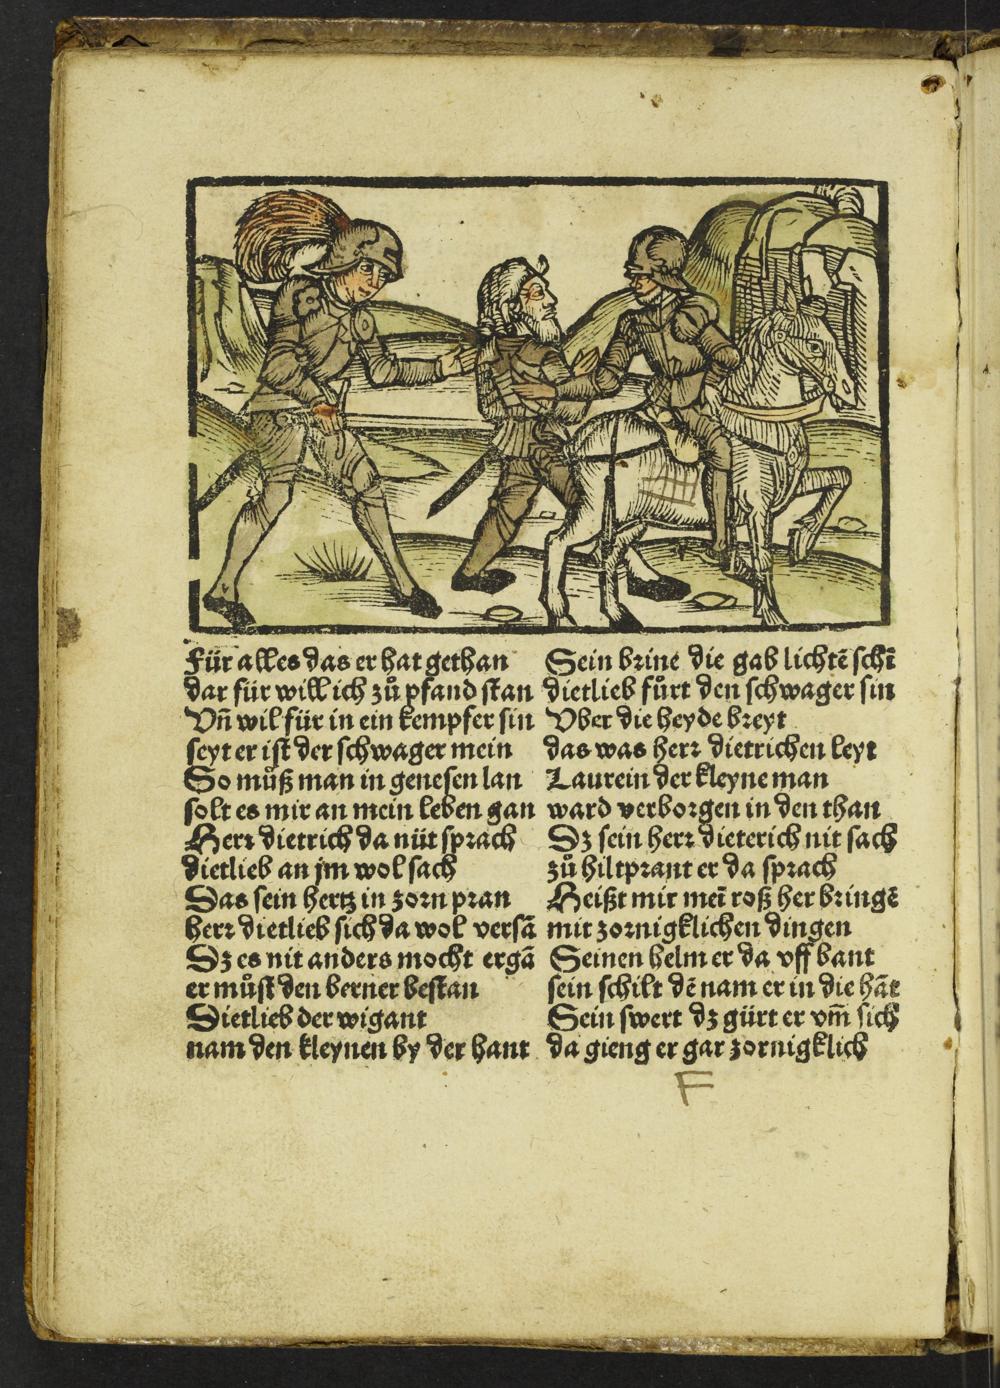 Für alles das er hat gethan
dar für will ich zů pfand stan
Vn̄ wil für in ein kempfer sin
seyt er ist der schwager mein
So můß man in genesen lan
solt es mir an mein leben gan
Herr dietrich da nüt sprach
dietlieb an jm wol sach
Das sein hertz in zorn pran
herr dietlieb sich da wol versā
Dz es nit anders mocht ergā
er můst den berner bestan
Dietlieb der wigant
nam den kleynen by der hant
Sein brine die gab lichtē schī
dietlieb fůrt den schwager sin
Vber die heyde breyt
das was herr dietrichen leyt
Laurein der kleyne man
ward verborgen in den than
Dz sein herr dieterich nit sach
zů hiltprant er da sprach
Heißt mir meī roß her bringē
mit zornigklichen dingen
Seinen helm er da vff bant
sein schilt dē nam er in die hāt
Sein swert dz gürt er vm̄ sich
da gieng er gar zornigklich
F